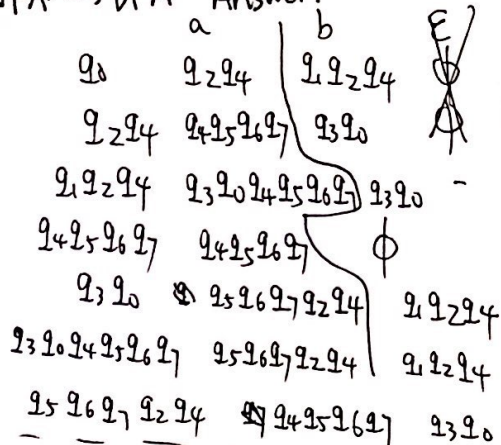 Answer
a b E
q0 q2q4 q1q2q4 ϕ
q2q4 q4q5q6q7 q3q0 ϕ
q1q2q4 q3q0q4q5q6q7 q3q0 -
q4q5q6q7 q4q5q6q7 ϕ
q3q0 q5q6q7q2q4 q1q2q4
q3q0q4q5q6q7 q5q6q7q2q4 q1q2q4
q5q6q7q2q4 q4q5q6q7 q3q0